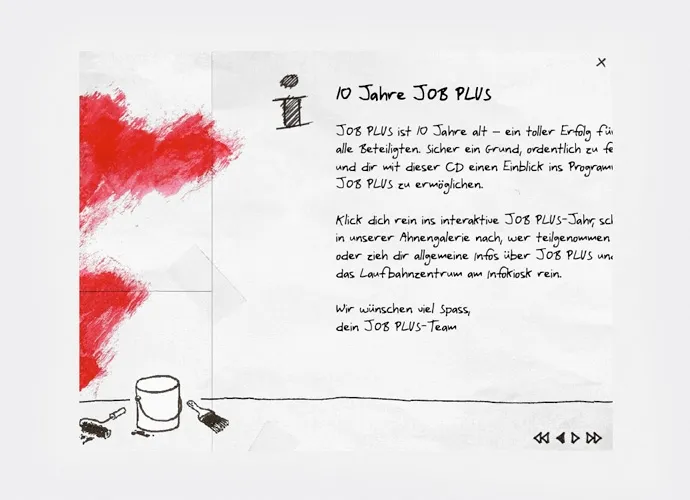 X
i
10 Jahre JOB PLUS
JOB PLUS ist 10 Jahre alt – ein toller Erfolg
alle Beteiligten. Sicher ein Grund, ordentlich zu
und dir mit dieser CD einen Einblick ins
JOB PLUS zu ermöglichen.
Klick dich rein ins interaktive JOB PLUS-Jahr,
in unserer Ahnengalerie nach, wer teilgenommen
oder zieh dir allgemeine Infos über JOB PLUS
das Laufbahnzentrum am Infokiosk rein.
Wir wünschen viel Spass,
dein JOB PLUS-Team